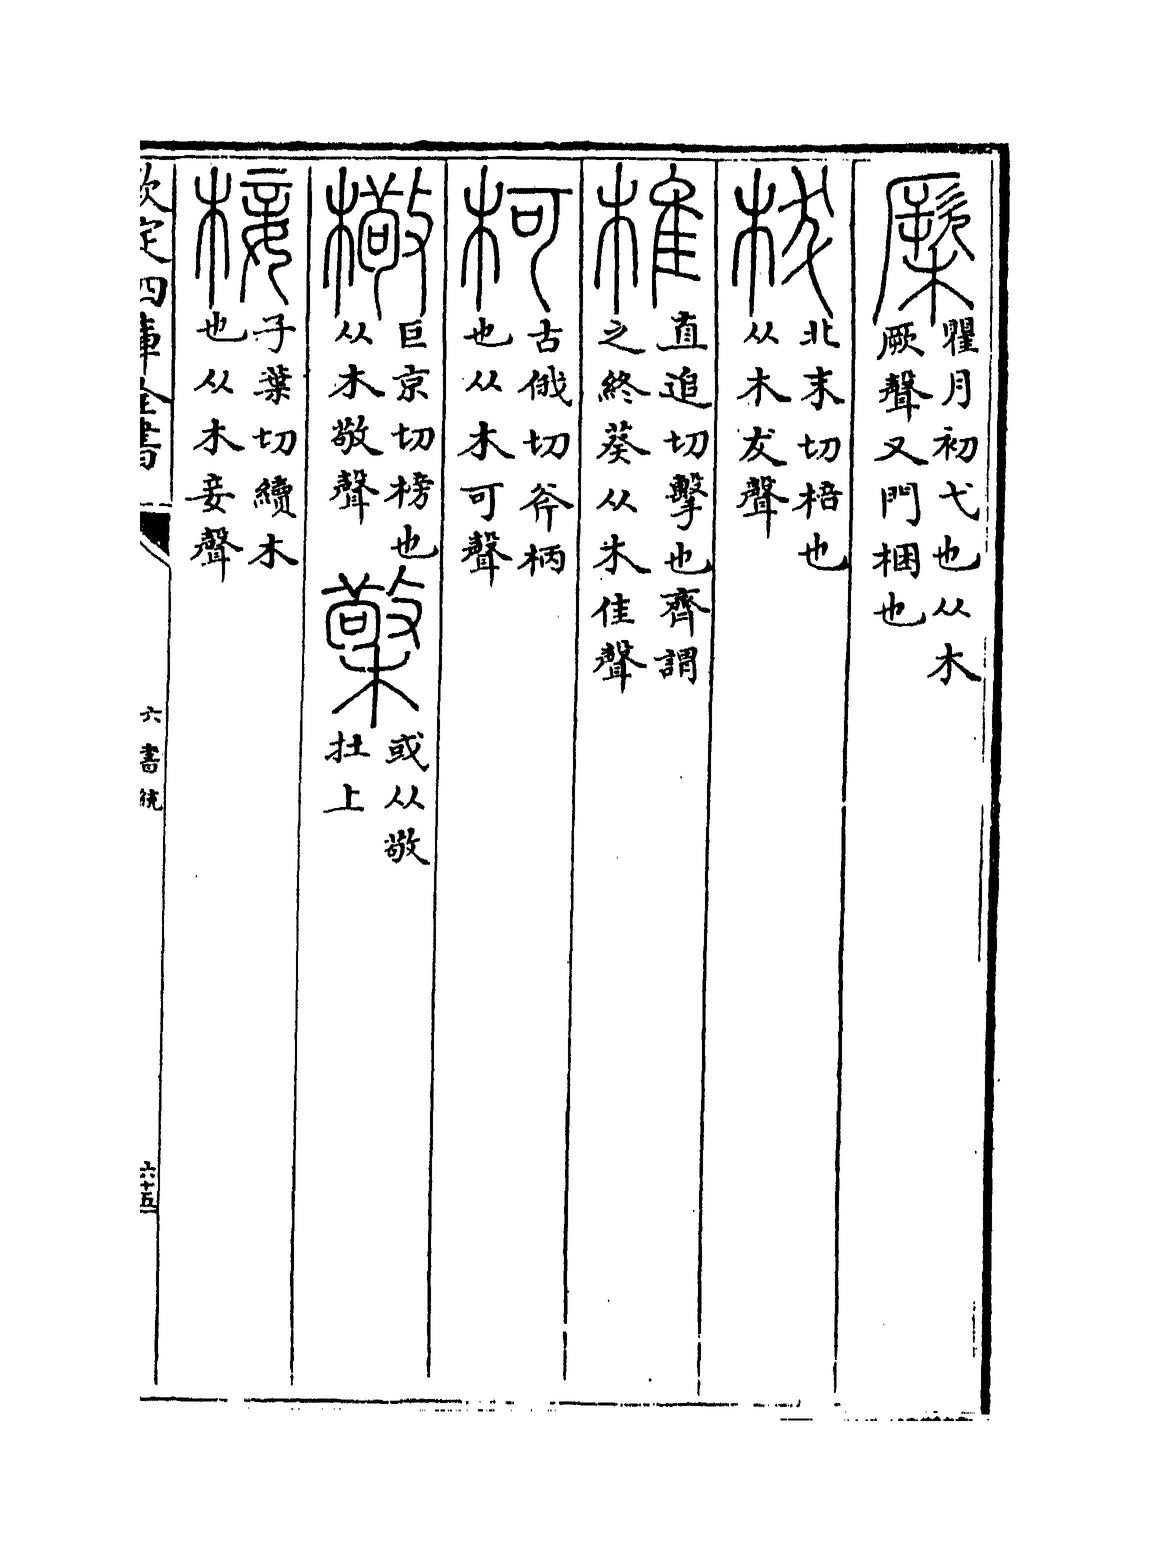 瞿月切弋也从木
厥聲又門梱也
㭭北末切棓也
从木犮聲
椎直追切擊也齊謂
之終葵从木隹聲
柯古俄切斧柄
也从木可聲
檠巨京切榜也
从木敬聲
或从敬
在上
椄子葉切續木
也从木妾聲
欽定四庫全書
六書統
六十五